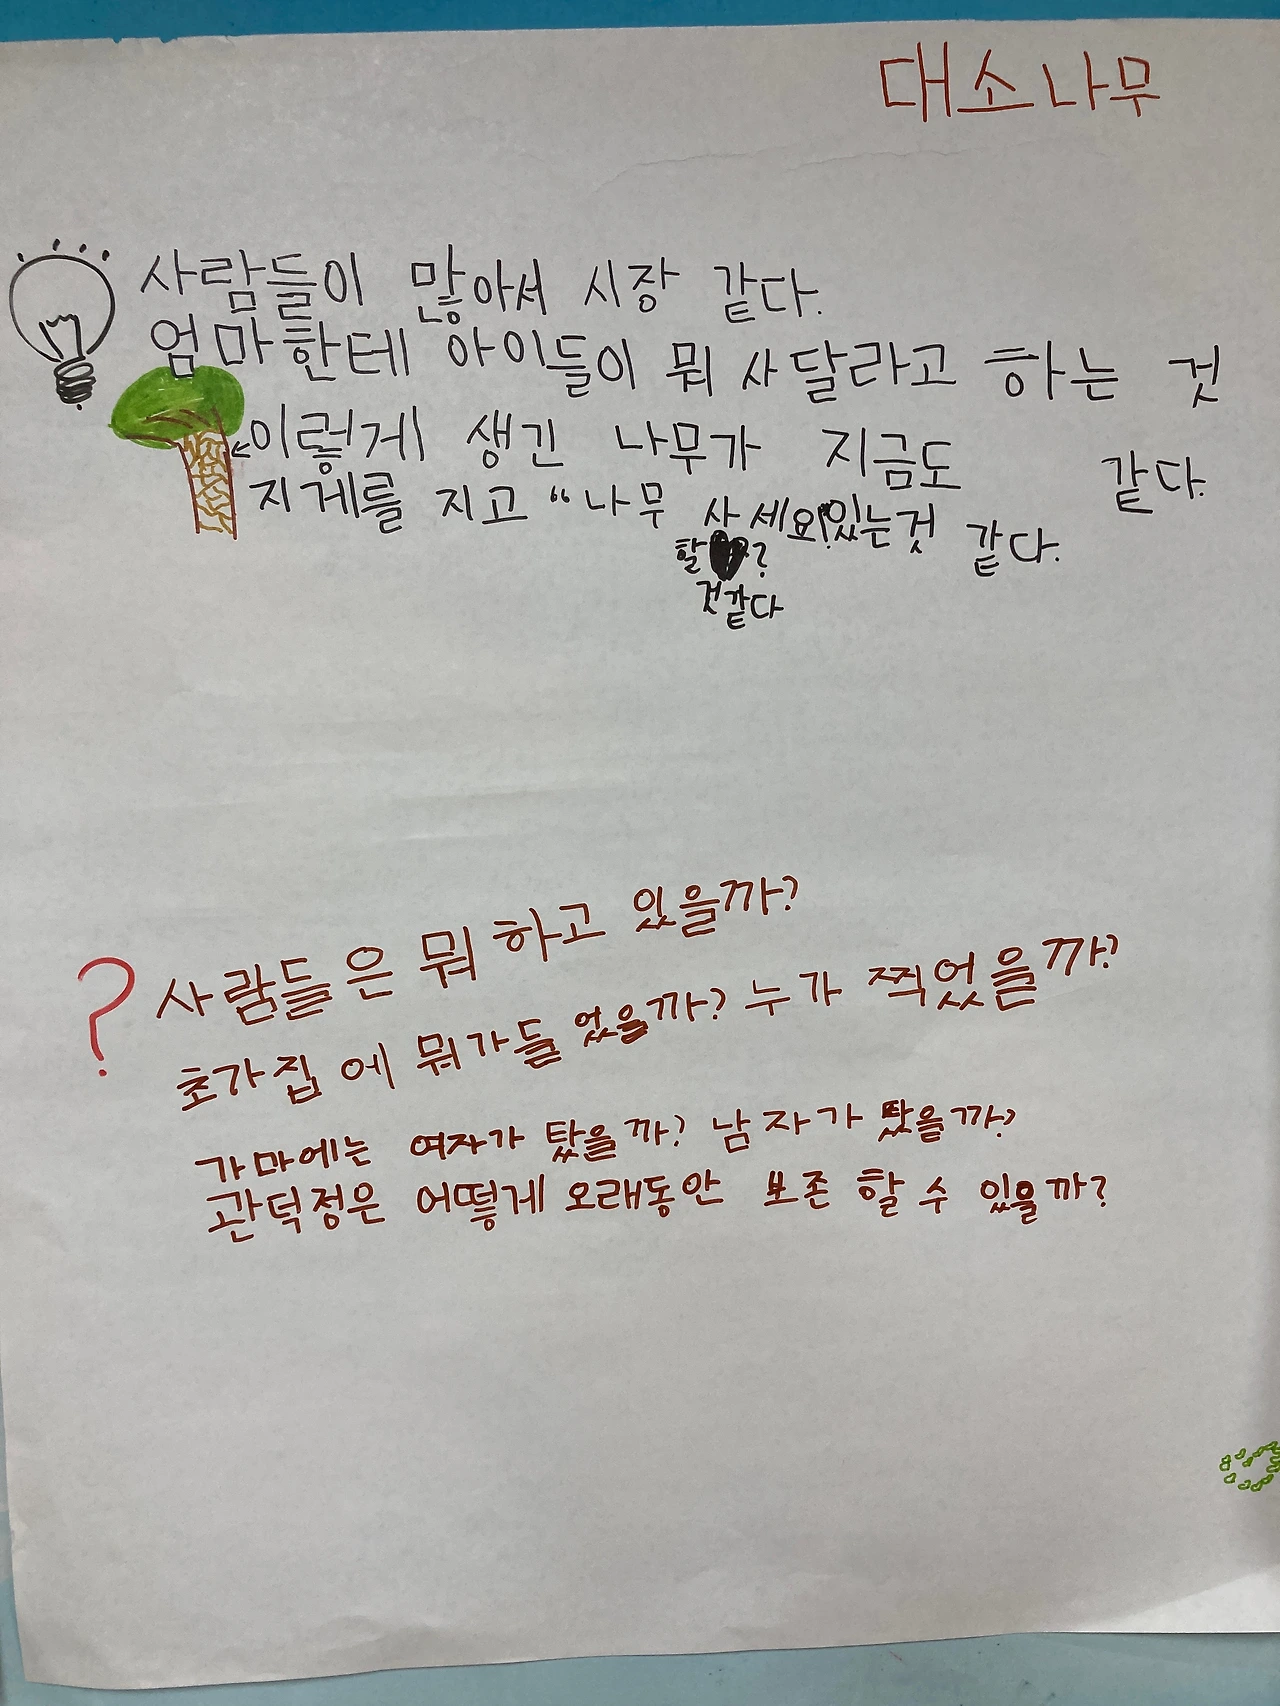 대소나무
사람들이 많아서 시장 같다.
엄마한테 아이들이 뭐 사달라고 하는 것
같다.
이렇게 생긴 나무가 지금도
있는것 같다.
지게를 지고 “나무 사세요!
할 ?
것같다
? 사람들은 뭐 하고 있을까?
초가집에 뭐가들었을까? 누가 찍었을까?
가마에는 여자가 탔을까? 남자가 탔을까?
관덕정은 어떻게 오래동안 보존 할 수 있을까?